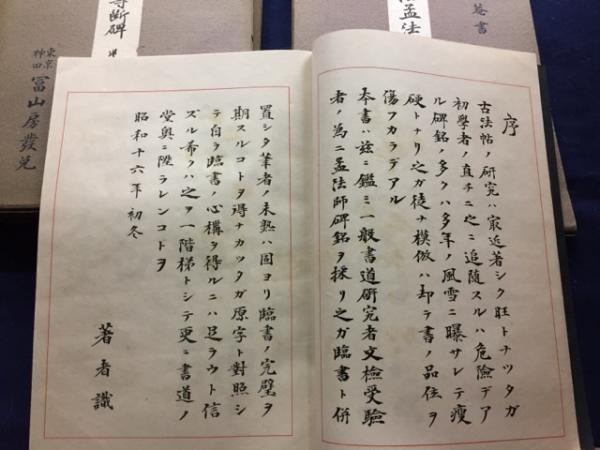 序
古法帖ノ研究ハ最近著シク旺トナツタガ
初學者ノ直チニ之ニ追随スルハ危險デア
ル碑銘ノ多クハ多年ノ風雪ニ曝サレテ瘦
硬トナリ之ガ徒ナ模倣ハ却テ書ノ品位ヲ
傷フカラデアル
本書ハ玆ニ鑑ミ一般書道研究者文檢受驗
者ノ為ニ孟法師碑銘ヲ採リ之ガ臨書ト併
置シタ筆者ノ未熟ハ固ヨリ臨書ノ完璧ヲ
期スルコトヲ得ナカツタガ原字ト對照シ
テ自ラ臨書ノ心構ヲ得ルニハ足ラウト信
ズル希クハ之ヲ一階梯トシテ更ニ書道ノ
堂奥ニ陞ラレンコトヲ
昭和十六年初冬
著者識
断碑
東京
神田
冨山房發兌
孟法
書